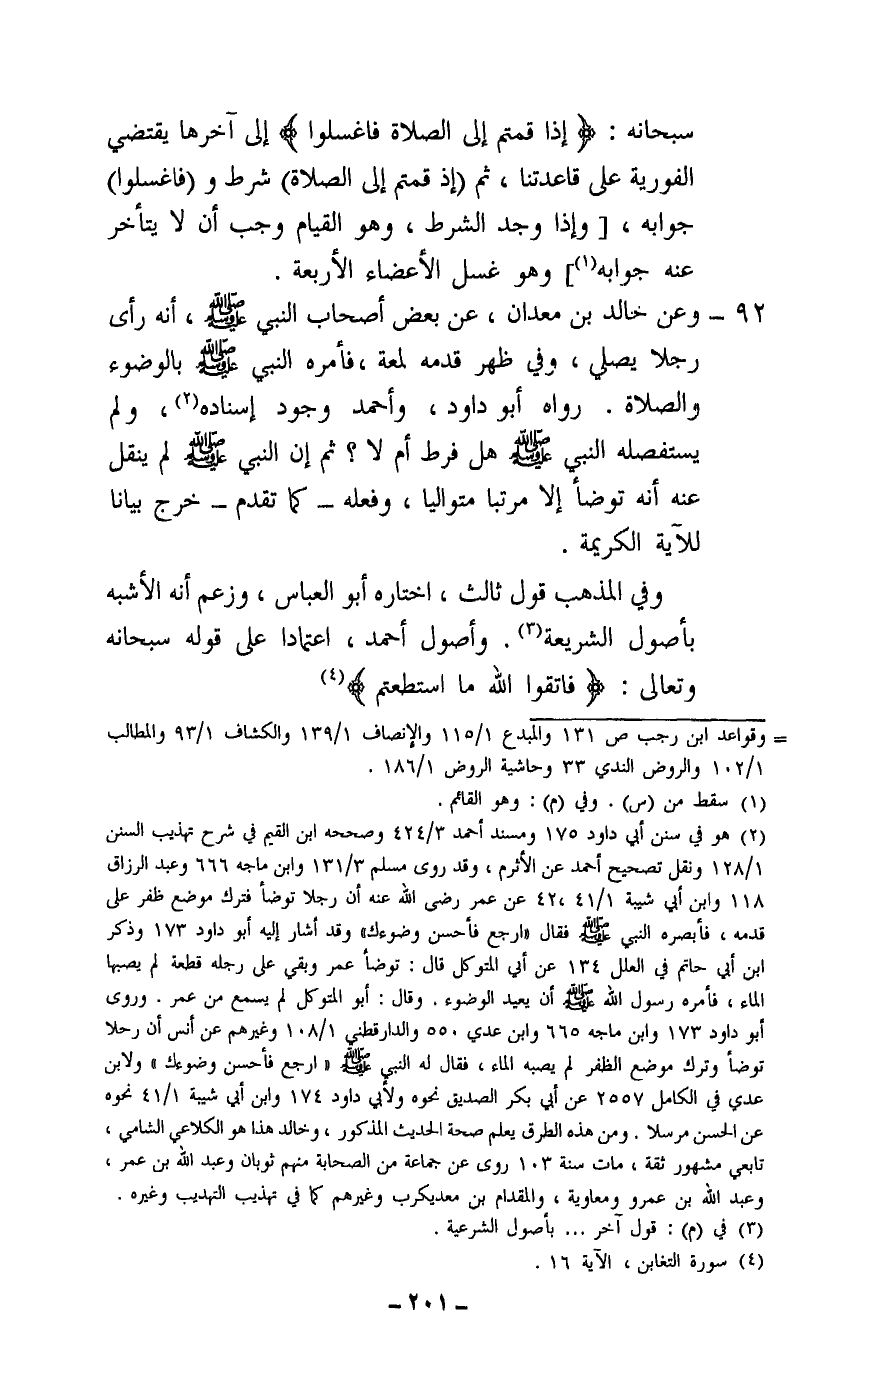 سبحانه : ﴿ إذا قمتم إلى الصلاة فاغسلوا ﴾ إلى آخرها يقتضي
الفورية على قاعدتنا ، ثم (إذ قمتم إلى الصلاة) شرط و (فاغسلوا)
جوابه ، [ وإذا وجد الشرط ، وهو القيام وجب أن لا يتأخر
عنه جوابه(١)] وهو غسل الأعضاء الأربعة .
٩٢ – وعن خالد بن معدان ، عن بعض أصحاب النبي ﷺ ، أنه رأى
رجلا يصلي ، وفي ظهر قدمه لمعة ،فأمره النبي ﷺ بالوضوء
والصلاة . رواه أبو داود ، وأحمد وجود إسناده(٢)، ولم
يستفصله النبي ﷺ هل فرط أم لا ؟ ثم إن النبي ﷺ لم ينقل
عنه أنه توضأ إلا مرتبا متواليا ، وفعله – كما تقدم – خرج بيانا
للآية الكريمة .
وفي المذهب قول ثالث ، اختاره أبو العباس ، وزعم أنه الأشبه
بأصول الشريعة(٣) . وأصول أحمد ، اعتمادا على قوله سبحانه
وتعالى : ﴿ فاتقوا الله ما استطعتم ﴾(٤)
= وقواعد ابن رجب ص ١٣١ والمبدع ١١٥/١ والإنصاف ١٣٩/١ والكشاف ٩٣/١ والمطالب
١٠٢/١ والروض الندي ٣٣ وحاشية الروض ١٨٦/١ .
(١) سقط من (س) . وفي (م) : وهو القائم .
(٢) هو في سنن أبي داود ١٧٥ ومسند أحمد ٤٢٤/٣ وصححه ابن القيم في شرح تهذيب السنن
١٢٨/١ ونقل تصحيح أحمد عن الأثرم ، وقد روى مسلم ١٣١/٣ وابن ماجه ٦٦٦ وعبد الرزاق
١١٨ وابن أبي شيبة ٤١/١ ،٤٢ عن عمر رضى الله عنه أن رجلا توضأ فترك موضع ظفر على
قدمه ، فأبصره النبي ﷺ فقال «ارجع فأحسن وضوءك» وقد أشار إليه أبو داود ١٧٣ وذكر
ابن أبي حاتم في العلل ١٣٤ عن أبي المتوكل قال : توضأ عمر وبقي على رجله قطعة لم يصبها
الماء ، فأمره رسول الله ﷺ أن يعيد الوضوء . وقال : أبو المتوكل لم يسمع من عمر . وروى
أبو داود ١٧٣ وابن ماجه ٦٦٥ وابن عدي ٥٥٠ والدارقطني ١٠٨/١ وغيرهم عن أنس أن رحلا
توضأ وترك موضع الظفر لم يصبه الماء ، فقال له النبي ﷺ « ارجع فأحسن وضوءك » ولابن
عدي في الكامل ٢٥٥٧ عن أبي بكر الصديق نحوه ولأبي داود ١٧٤ وابن أبي شيبة ٤١/١ نحوه
عن الحسن مرسلا . ومن هذه الطرق يعلم صحة الحديث المذكور ، وخالد هذا هو الكلاعي الشامي ،
تابعي مشهور ثقة ، مات سنة ١٠٣ روى عن جماعة من الصحابة منهم ثوبان وعبد الله بن عمر ،
وعبد الله بن عمرو ومعاوية ، والمقدام بن معديكرب وغيرهم كما في تهذيب التهذيب وغيره .
(٣) في (م) : قول آخر ... بأصول الشرعية .
(٤) سورة التغابن ، الآية ١٦ .
– ٢٠١ –